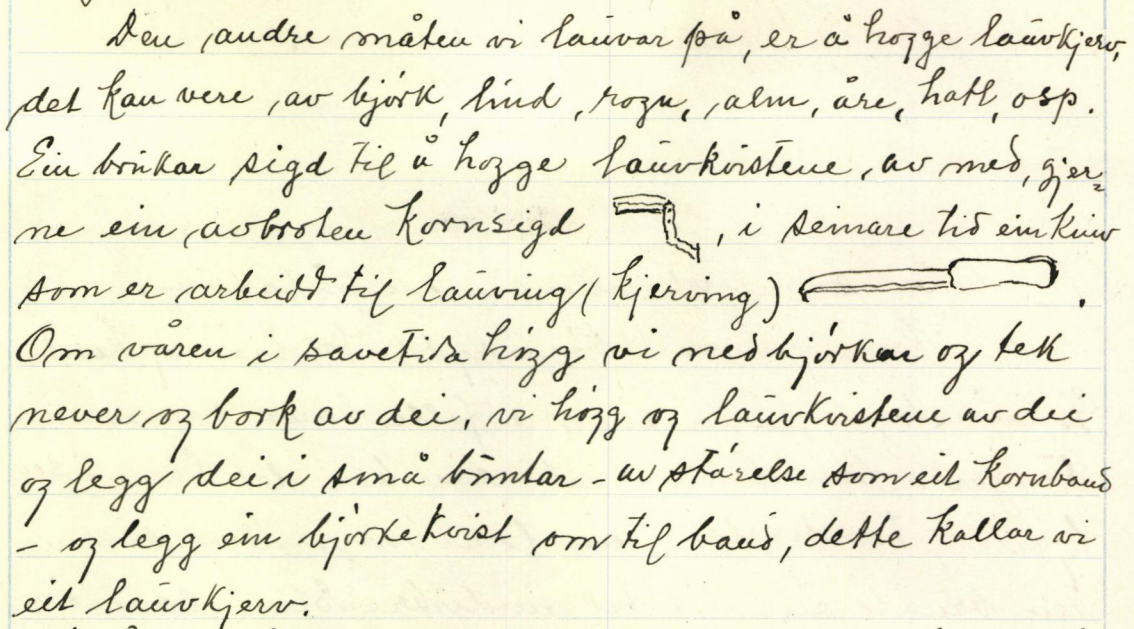 Den andre måten vi lauvar på, er å hogge lauvkjerv,
det kan vere av bjørk, lind, rogn, alm, åre, hatl, osp.
Ein brukar sigd til å hogge lauvkvistene av med, gjer=
ne ein avbroten kornsigd , i seinare tid ein kniv
som er arbeidd til lauving (kjerving) .
Om våren i savetida høgg vi ned bjørkar og tek
never og bork av dei, vi høgg og lauvkvistene av dei
og legg dei i små buntar - av størelse som eit kornband
- og legg ein bjørkekvist om til band, dette kallar vi
eit lauvkjerv.